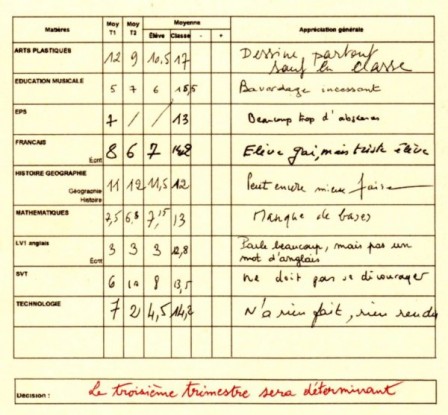 Matières Moy T1 Moy T2 Moyenne Appréciation générale
Élève Classe - +
ARTS PLASTIQUES 12 9 10,5 17 Dessine partout
sauf en classe
EDUCATION MUSICALE 5 7 6 15,5 Bavardage incessant
EPS 7 / / 13 Beaucoup trop d'absences
FRANCAIS 8 6 7 14,2 Elève gai, mais triste élève
Ecrit
HISTOIRE GEOGRAPHIE 11 12 11,5 12 Peut encore mieux faire
Géographie
Histoire
MATHEMATIQUES 7,5 6,8 7,15 13 Manque de bases
LV1 anglais 3 3 3 12,8 Parle beaucoup, mais pas un
Ecrit mot d'anglais
SVT 6 10 8 13,5 ne doit pas se décourager
TECHNOLOGIE 7 2 4,5 14,2 N'a rien fait, rien rendu
Décision : Le troisième trimestre sera déterminant